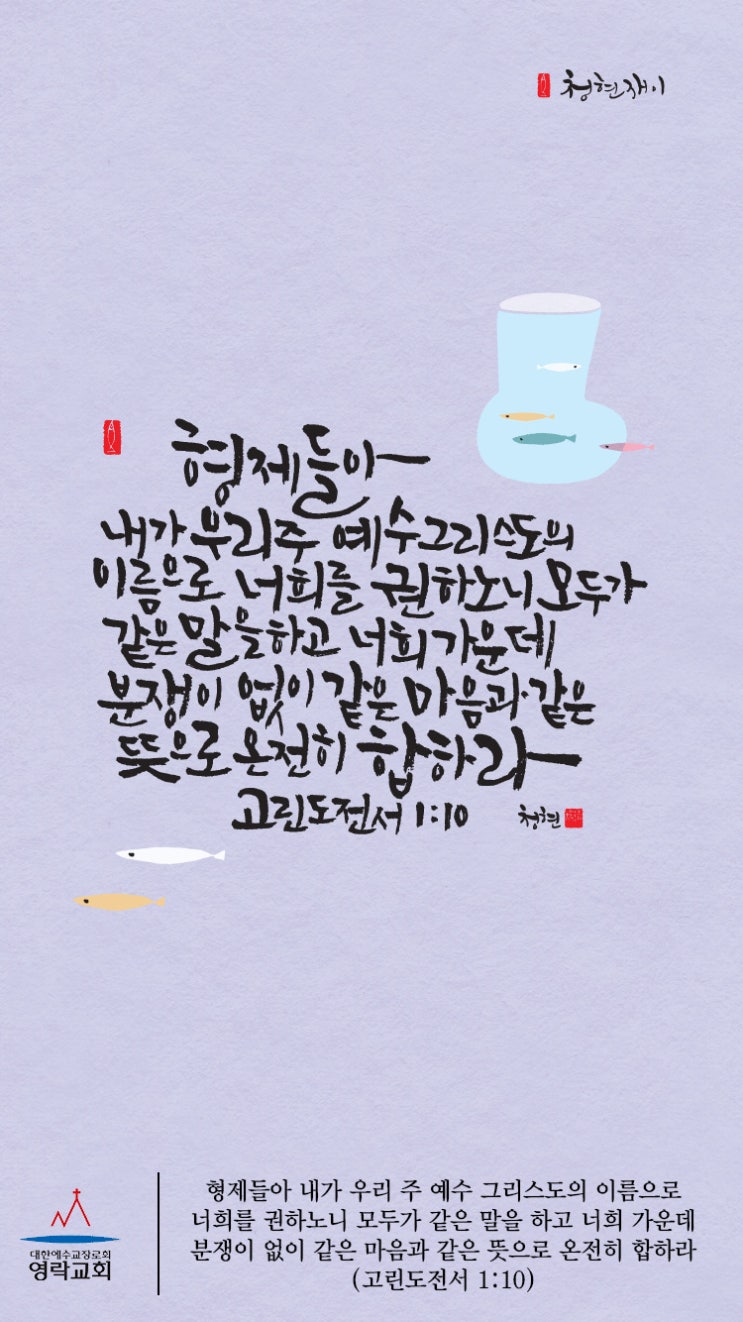 청현재이
형제들아
내가 우리 주 예수 그리스도의
이름으로 너희를 권하노니 모두가
같은 말을 하고 너희 가운데
분쟁이 없이 같은 마음과 같은
뜻으로 온전히 합하라
고린도전서 1:10
청현
대한예수교장로회
영락교회
형제들아 내가 우리 주 예수 그리스도의 이름으로
너희를 권하노니 모두가 같은 말을 하고 너희 가운데
분쟁이 없이 같은 마음과 같은 뜻으로 온전히 합하라
(고린도전서 1:10)